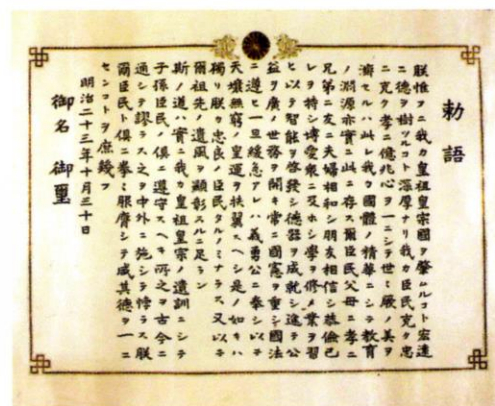 勅語
朕惟フニ我カ皇祖皇宗國ヲ肇ムルコト宏遠
ニ德ヲ樹ツルコト深厚ナリ我カ臣民克ク忠
ニ克ク孝ニ億兆心ヲ一ニシテ世々厥ノ美ヲ
濟セルハ此レ我カ國體ノ精華ニシテ教育
ノ淵源亦實ニ此ニ存ス爾臣民父母ニ孝ニ
兄弟ニ友ニ夫婦相和シ朋友相信シ恭儉己
レヲ持シ博愛衆ニ及ホシ學ヲ修メ業ヲ習
ヒ以テ智能ヲ啓發シ德器ヲ成就シ進テ公
益ヲ廣メ世務ヲ開キ常ニ國憲ヲ重シ國法
ニ遵ヒ一旦緩急アレハ義勇公ニ奉シ以テ
天壤無窮ノ皇運ヲ扶翼スヘシ是ノ如キハ
獨リ朕カ忠良ノ臣民タルノミナラス又以テ
爾祖先ノ遺風ヲ顯彰スルニ足ラン
斯ノ道ハ實ニ我カ皇祖皇宗ノ遺訓ニシテ
子孫臣民ノ俱ニ遵守スヘキ所之ヲ古今ニ
通シテ謬ラス之ヲ中外ニ施シテ悖ラス朕
爾臣民ト俱ニ拳々服膺シテ咸其德ヲ一ニ
センコトヲ庶幾フ
明治二十三年十月三十日
御名 御璽